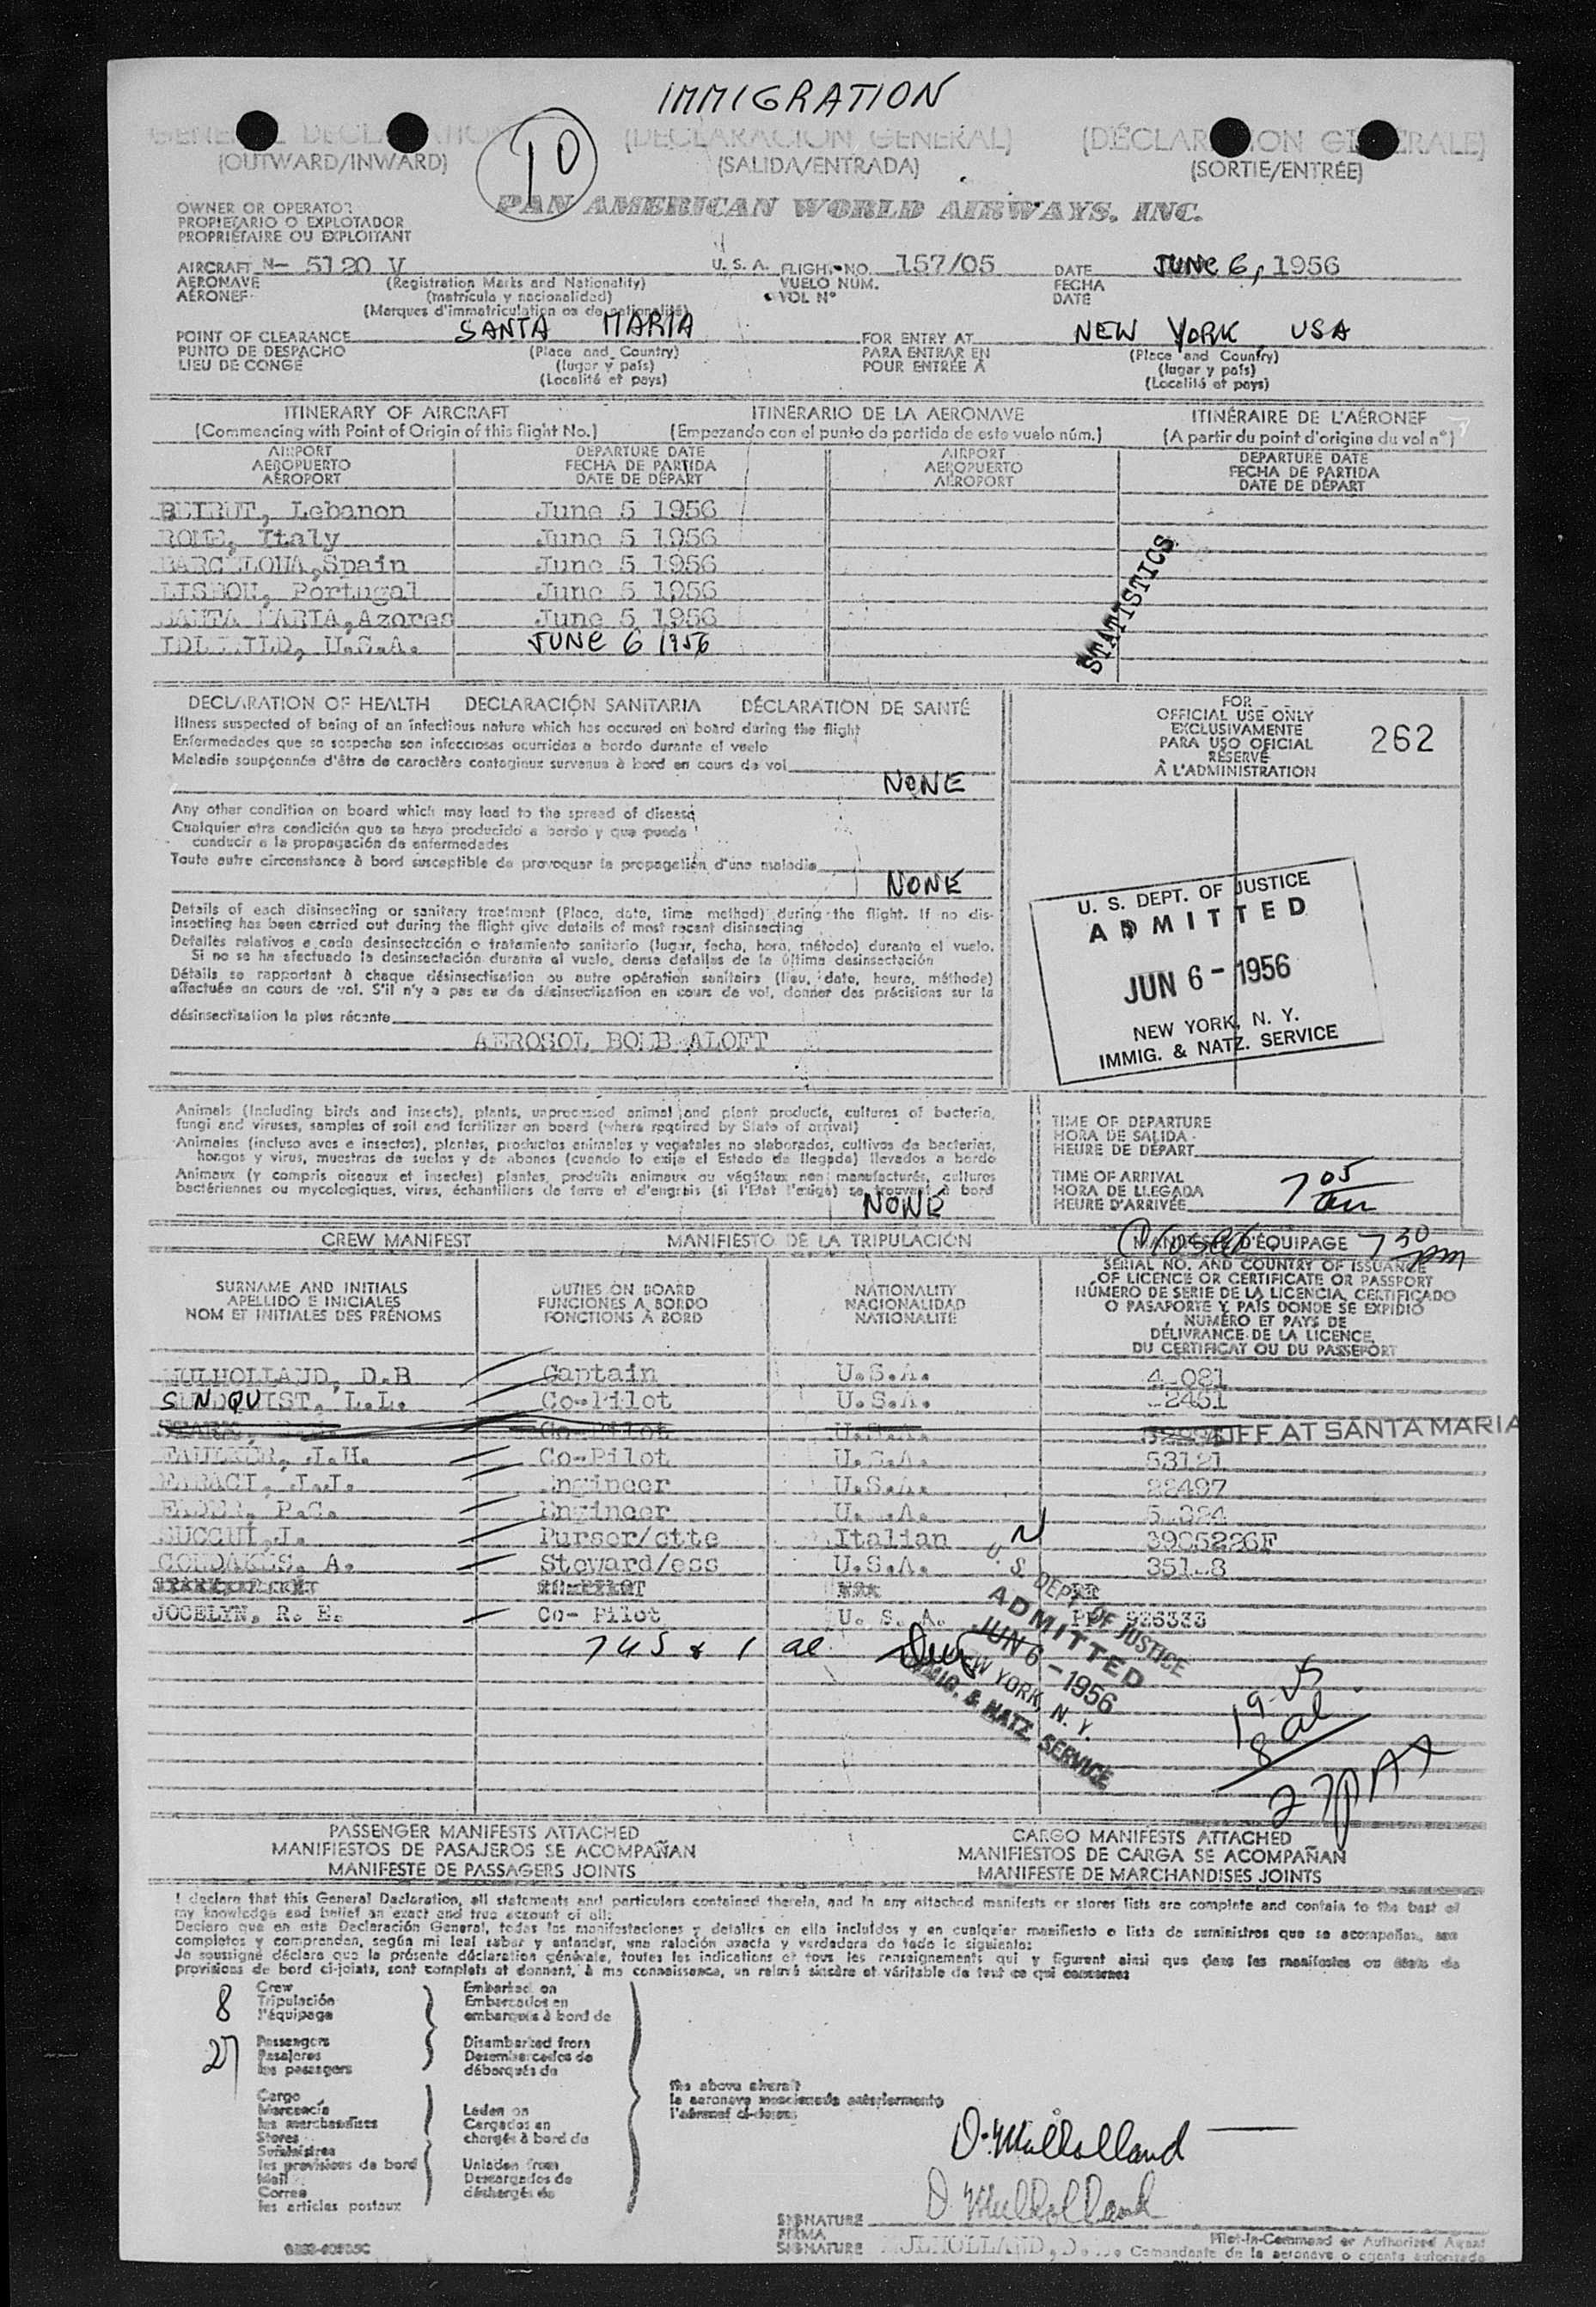 IMMIGRATION
10
(OUTWARD/INWARD) (SALIDA/ENTRADA) (SORTIE/ENTRÉE)
(DECLARACION GENERAL)
OWNER OR OPERATOR
PROPIETARIO O EXPLOTADOR
PROPRIÉTAIRE OU EXPLOITANT
PAN AMERICAN WORLD AIRWAYS, INC.
AIRCRAFT N- 5120 V U. S. A. FLIGHT NO. 157/05 DATE JUNE 6, 1956
AERONAVE (Registration Marks and Nationality) VUELO NÚM. FECHA
AÉRONEF (matrícula y nacionalidad) VOL N° DATE
(Marques d'immatriculation ou de nationalité)
POINT OF CLEARANCE SANTA MARIA FOR ENTRY AT NEW YORK, USA
PUNTO DE DESPACHO (Place and Country) PARA ENTRAR EN (Place and Country)
LIEU DE CONGÉ (lugar y país) POUR ENTRÉE A (lugar y país)
(Localité et pays) (Localité et pays)
ITINERARY OF AIRCRAFT ITINERARIO DE LA AERONAVE ITINÉRAIRE DE L'AÉRONEF
(Commencing with Point of Origin of this flight No.) (Empezando con el punto de partida de este vuelo núm.) (A partir du point d'origine du vol n°)
AIRPORT DEPARTURE DATE AIRPORT DEPARTURE DATE
AEROPUERTO FECHA DE PARTIDA AEROPUERTO FECHA DE PARTIDA
AÉROPORT DATE DE DÉPART AÉROPORT DATE DE DÉPART
BEIRUT, Lebanon June 5 1956
ROME, Italy June 5 1956
BARCELONA, Spain June 5 1956
LISBON, Portugal June 5 1956
SANTA MARIA, Azores June 5 1956
IDLEWILD, U.S.A. JUNE 6 1956
STATISTICS
DECLARATION OF HEALTH DECLARACIÓN SANITARIA DÉCLARATION DE SANTÉ
Illness suspected of being of an infectious nature which has occured on board during the flight
Enfermedades que se sospecha son infecciosas ocurridas a bordo durante el vuelo
Maladie soupçonnée d'être de caractère contagieux survenue à bord en cours de vol
NONE
FOR
OFFICIAL USE ONLY
EXCLUSIVAMENTE
PARA USO OFICIAL
RÉSERVÉ
À L'ADMINISTRATION
262
Any other condition on board which may lead to the spread of disease
Cualquier otra condición que se haya producido a bordo y que pueda
conducir a la propagación de enfermedades
Toute autre circonstance à bord susceptible de provoquer la propagation d'une maladie
NONE
Details of each disinsecting or sanitary treatment (Place, date, time method) during the flight. If no dis-
insecting has been carried out during the flight give details of most recent disinsecting
Detalles relativos a cada desinsectación o tratamiento sanitario (lugar, fecha, hora, método) durante el vuelo.
Si no se ha efectuado la desinsectación durante el vuelo, dense detalles de la última desinsectación
Détails se rapportant à chaque désinsectisation ou autre opération sanitaire (lieu, date, heure, méthode)
effectuée en cours de vol. S'il n'y a pas eu de désinsectisation en cours de vol, donner des précisions sur la
désinsectisation la plus récente
AEROSOL BOMB ALOFT
U. S. DEPT. OF JUSTICE
ADMITTED
JUN 6 - 1956
NEW YORK, N. Y.
IMMIG. & NATZ. SERVICE
Animals (Including birds and insects), plants, unprocessed animal and plant products, cultures of bacteria,
fungi and viruses, samples of soil and fertilizer on board (where required by State of arrival)
Animales (incluso aves e insectos), plantas, productos animales y vegetales no elaborados, cultivos de bacterias,
hongos y virus, muestras de suelos y de abonos (cuando lo exija el Estado de llegada) llevados a bordo
Animaux (y compris oiseaux et insectes) plantes, produits animaux ou végétaux non manufacturés, cultures
bactériennes ou mycologiques, virus, échantillons de terre et d'engrais (si l'Etat l'exige) se trouvant à bord
NONE
TIME OF DEPARTURE
HORA DE SALIDA
HEURE DE DÉPART
TIME OF ARRIVAL
HORA DE LLEGADA
HEURE D'ARRIVÉE
7 05
am
CREW MANIFEST MANIFIESTO DE LA TRIPULACIÓN MANIFESTE D'ÉQUIPAGE
7 30 pm
SURNAME AND INITIALS DUTIES ON BOARD NATIONALITY
APELLIDO E INICIALES FUNCIONES A BORDO NACIONALIDAD
NOM ET INITIALES DES PRÉNOMS FONCTIONS À BORD NATIONALITÉ
SERIAL NO. AND COUNTRY OF ISSUANCE
OF LICENCE OR CERTIFICATE OR PASSPORT
NÚMERO DE SERIE DE LA LICENCIA, CERTIFICADO
O PASAPORTE Y PAÍS DONDE SE EXPIDIÓ
NUMÉRO ET PAYS DE
DÉLIVRANCE DE LA LICENCE
DU CERTIFICAT OU DU PASSEPORT
MULHOLLAND, D.B Captain U.S.A.
SINDQUIST, L.L. Co-Pilot U.S.A.
Co-Pilot U.S.A. OFF AT SANTA MARIA
J.H. Co-Pilot U.S.A. 53121
FARACI, J.J. Engineer U.S.A. 22497
P.C. Engineer
SUCCHI, J. Purser/ette Italian 3905226F
A. Steward/ess U.S.A.
JOCELYN, R. E. Co- Pilot U. S. A. PP 926333
7 US & 1 al
U. S. DEPT. OF JUSTICE
ADMITTED
JUN 6 - 1956
NEW YORK, N. Y.
IMMIG. & NATZ. SERVICE
19 US
8 al
27 PAX
PASSENGER MANIFESTS ATTACHED CARGO MANIFESTS ATTACHED
MANIFIESTOS DE PASAJEROS SE ACOMPAÑAN MANIFIESTOS DE CARGA SE ACOMPAÑAN
MANIFESTE DE PASSAGERS JOINTS MANIFESTE DE MARCHANDISES JOINTS
I declare that this General Declaration, all statements and particulars contained therein, and in any attached manifests or stores lists are complete and contain to the best of
my knowledge and belief an exact and true account of all:
Declaro que en esta Declaración General, todas las manifestaciones y detalles en ella incluídos y en cualquier manifiesto o lista de suministros que se acompañan, son
completos y comprenden, según mi leal saber y entender, una relación exacta y verdadera de todo lo siguiente:
Je soussigné déclare que la présente déclaration générale, toutes les indications et tous les renseignements qui y figurent ainsi que dans les manifestes ou états de
provisions de bord ci-joints, sont complets et donnent, à ma connaissance, un relevé sincère et véritable de tout ce qui concerne:
8 Crew Embarked on
Tripulación Embarcados en
l'équipage embarqués à bord de
27 Passengers Disembarked from
Pasajeros Desembarcados de
les passagers débarqués de
Cargo
Mercancía Laden on
les marchandises Cargados en
Stores chargés à bord de
Suministros
les provisions de bord Unladen from
Mail Descargados de
Correo déchargés de
les articles postaux
the above aircraft
la aeronave mencionada anteriormente
l'aéronef ci-dessus
D. Mulholland
D. Mulholland
SIGNATURE
FIRMA
SIGNATURE MULHOLLAND, D.
Pilot-in-Command or Authorized Agent
Comandante de la aeronave o agente autorizado